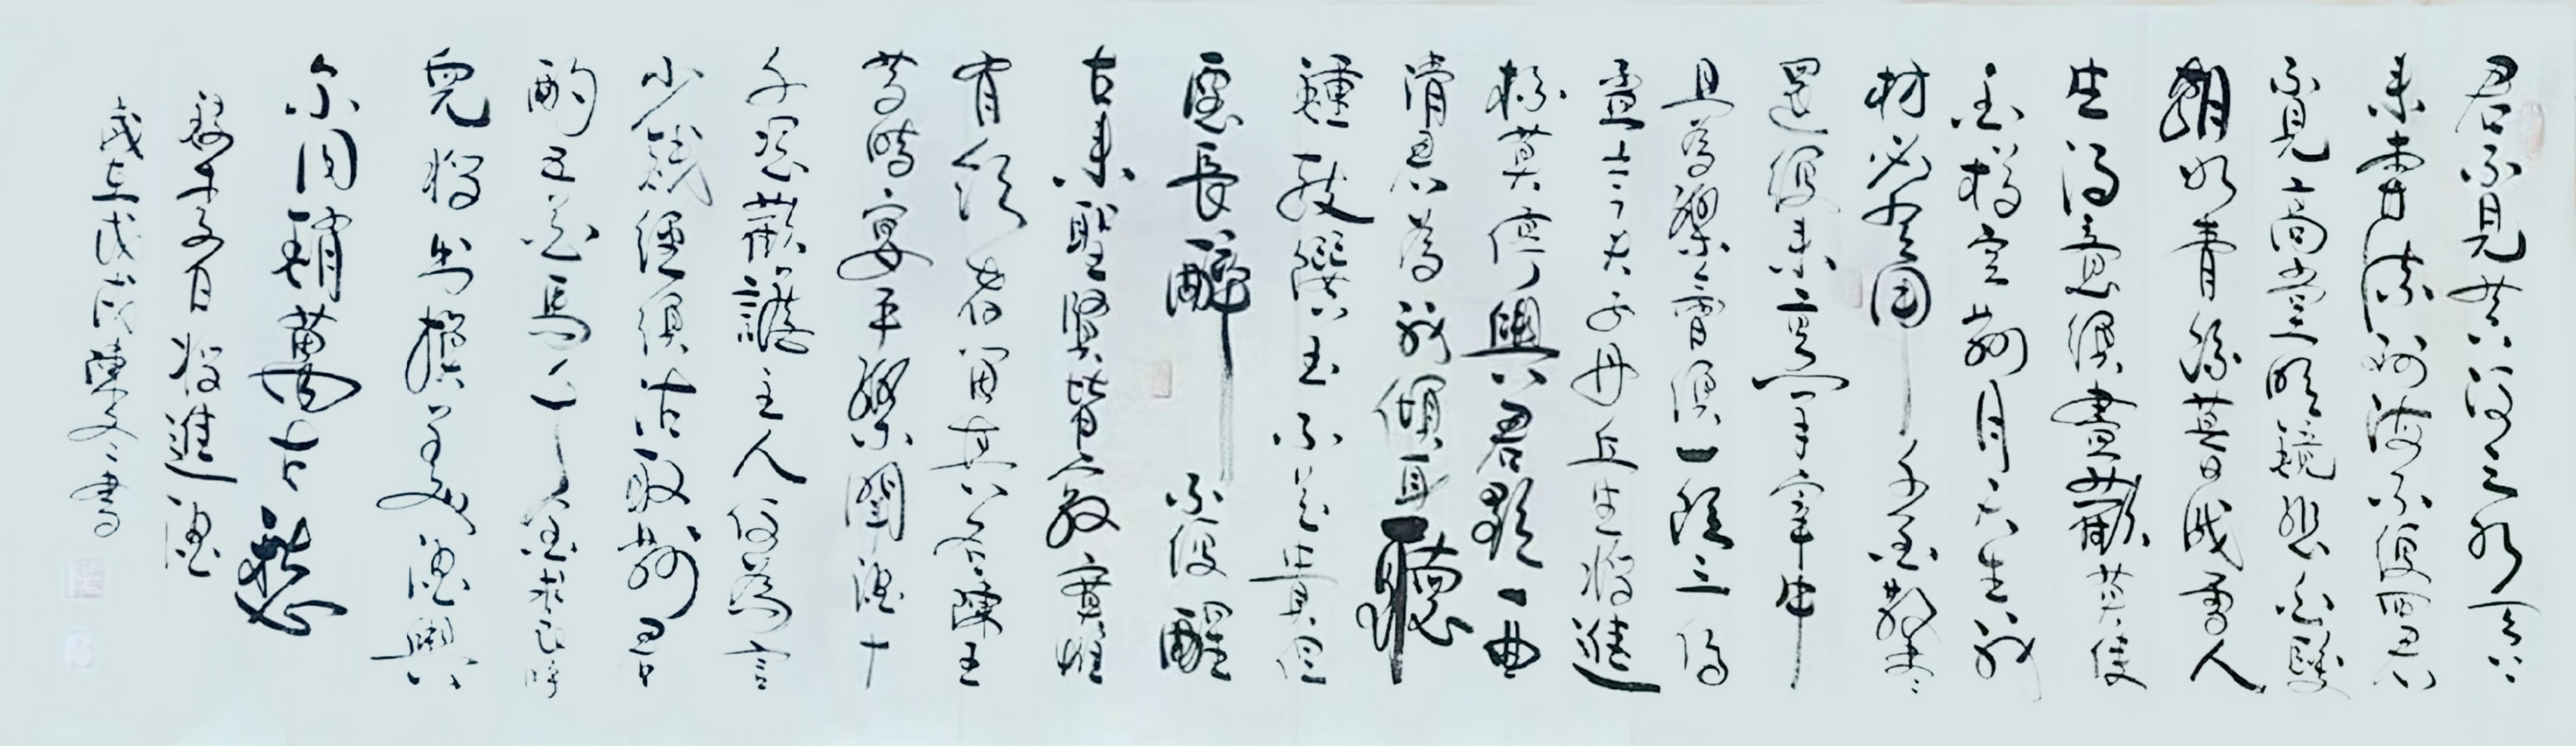 君不見黃河之水天上
來奔流到海不復回君
不見高堂明鏡悲白髮
朝如青絲暮成雪人
生得意須盡歡莫使
金樽空對月天生我
材必有用千金散盡
還復來烹羊宰牛
且為樂會須一飲三百
盃岑夫子丹丘生將進
杯莫停與君歌一曲
請君為我傾耳聽
鐘鼓饌玉不足貴但
願長醉不復醒
古來聖賢皆寂寞惟
有飲者留其名陳王
昔時宴平樂鬥酒十
千恣歡謔主人何為言
少錢徑須沽取對君
酌五花馬千金裘呼
兒將出換美酒與
爾同銷萬古愁
李白將進酒
歲在戊戌陳文書